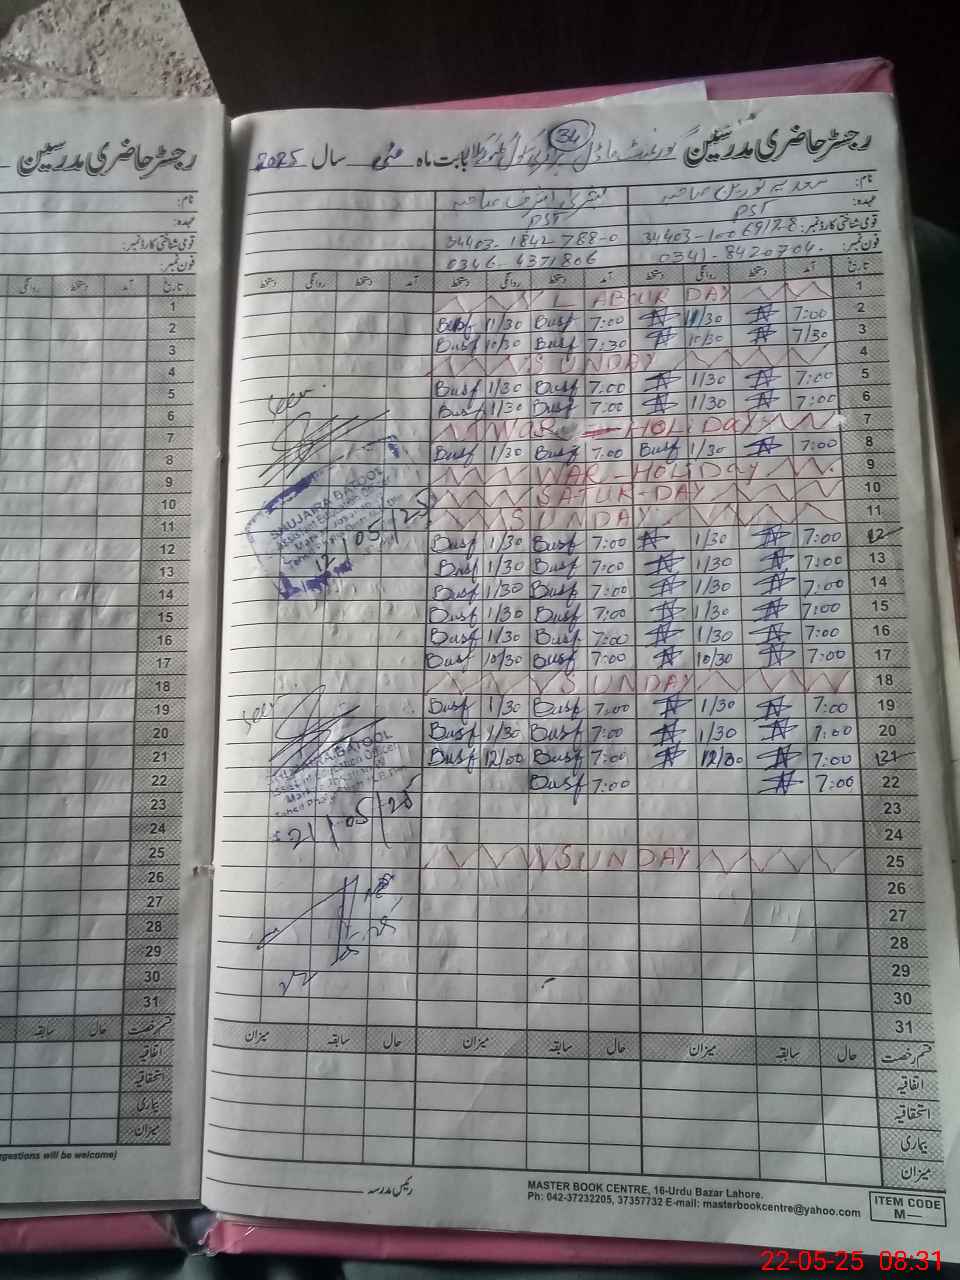 رجسٹر حاضری مدرسین
34
رجسٹر حاضری مدرسین گورنمنٹ ماڈل پرائمری سکول بابت ماہ مئی سال 2025
نام: سعدیہ نورین صاحبہ بشریٰ اشرف صاحبہ
عہدہ: PST PST
قومی شناختی کارڈ نمبر: 34403-1842788-0
فون نمبر: 0341-8420704. 0346-4371806
تاریخ آمد دستخط روانگی دستخط آمد دستخط روانگی دستخط آمد دستخط روانگی دستخط
LABOUR DAY 1
Busf 11/30 Busf 7:00 N 11/30 N 7:00 2
Busf 10/30 Busf 7:30 N 10/30 N 7/30 3
SUNDAY 4
Busf 1/30 Busf 7:00 N 1/30 N 7:00 5
Busf 1/30 Busf 7:00 N 1/30 N 7:00 6
WAR - HOLIDAY 7
Busf 1/30 Busf 7:00 Busf 1/30 N 7:00 8
WAR - HOLIDAY 9
SATUR-DAY 10
SUNDAY 11
Busf 1/30 Busf 7:00 N 1/30 N 7:00 12
Busf 1/30 Busf 7:00 N 1/30 N 7:00 13
Busf 1/30 Busf 7:00 N 1/30 N 7:00 14
Busf 1/30 Busf 7:00 N 1/30 N 7:00 15
Busf 1/30 Busf 7:00 N 1/30 N 7:00 16
Busf 10/30 Busf 7:00 N 10/30 N 7:00 17
SUNDAY 18
Busf 1/30 Busf 7:00 N 1/30 N 7:00 19
Busf 1/30 Busf 7:00 N 1/30 N 7:00 20
Busf 12/00 Busf 7:00 N 12/00 N 7:00 21
Busf 7:00 N 7:00 22
23
24
SUNDAY 25
26
27
28
29
30
31
Seen
SHUJAIRA BATOOL
Assistant Education Officer
12/05/25
Seen
BATOOL
Education Officer
21/05/25
قسم رخصت حال سابقہ میزان حال سابقہ میزان حال سابقہ میزان
اتفاقیہ
استحقاقیہ
بیماری
میزان
رئیس مدرسہ
MASTER BOOK CENTRE, 16-Urdu Bazar Lahore.
Ph: 042-37232205, 37357732 E-mail: masterbookcentre@yahoo.com
ITEM CODE
M—
نام:
عہدہ:
قومی شناختی کارڈ نمبر:
فون نمبر:
تاریخ آمد دستخط روانگی
1
2
3
4
5
6
7
8
9
10
11
12
13
14
15
16
17
18
19
20
21
22
23
24
25
26
27
28
29
30
31
قسم رخصت حال سابقہ
اتفاقیہ
استحقاقیہ
بیماری
میزان
ggestions will be welcome)
22-05-25 08:31